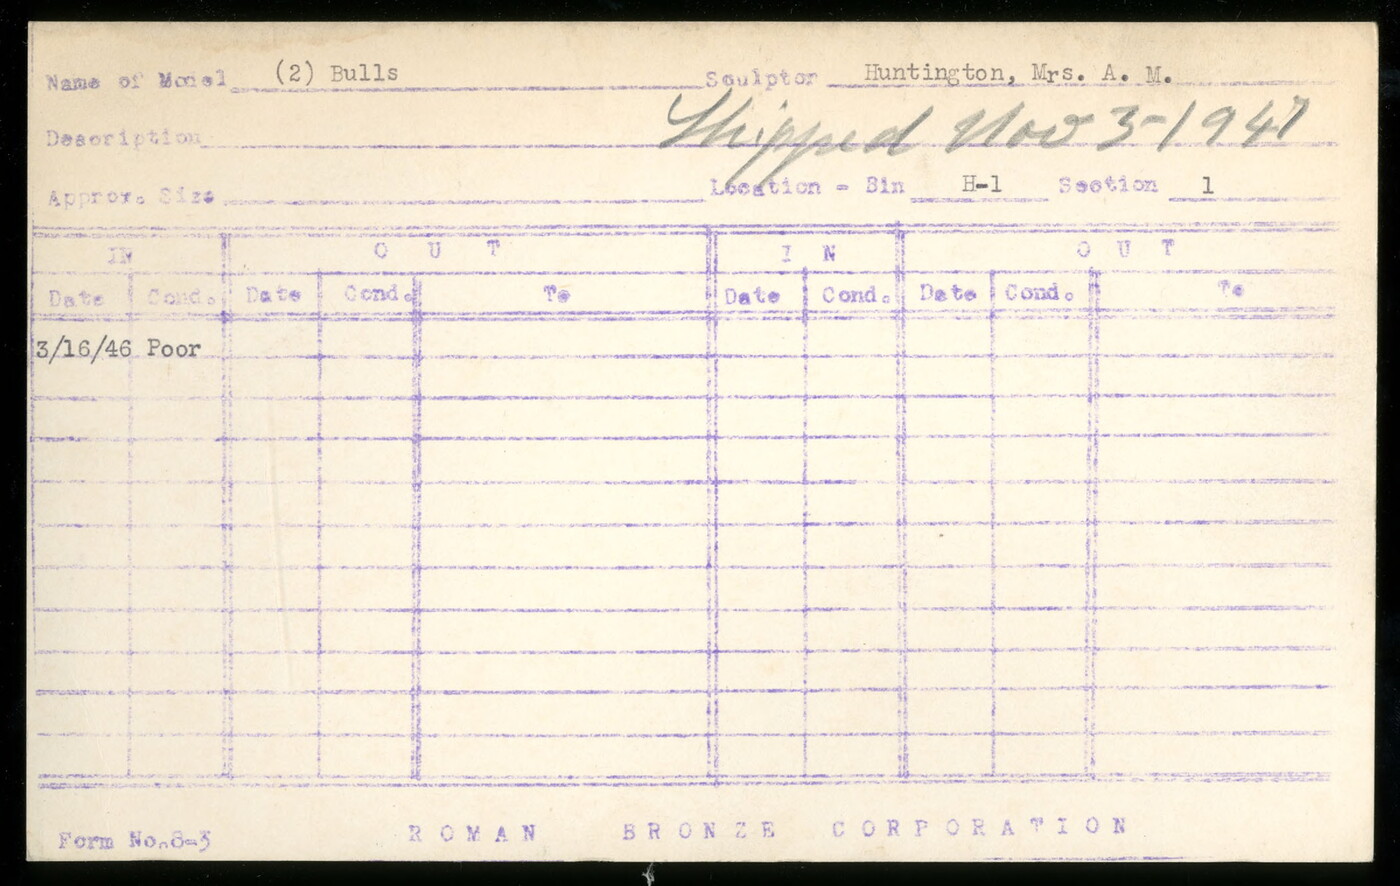 Name of Model (2) Bulls Sculptor Huntington, Mrs. A. M.
Shipped Nov 3-1947
Description
Approx. Size Location - Bin H-1 Section 1
IN OUT IN OUT
Date Cond. Date Cond. To Date Cond. Date Cond. To
3/16/46 Poor
Form No. 8-3 ROMAN BRONZE CORPORATION